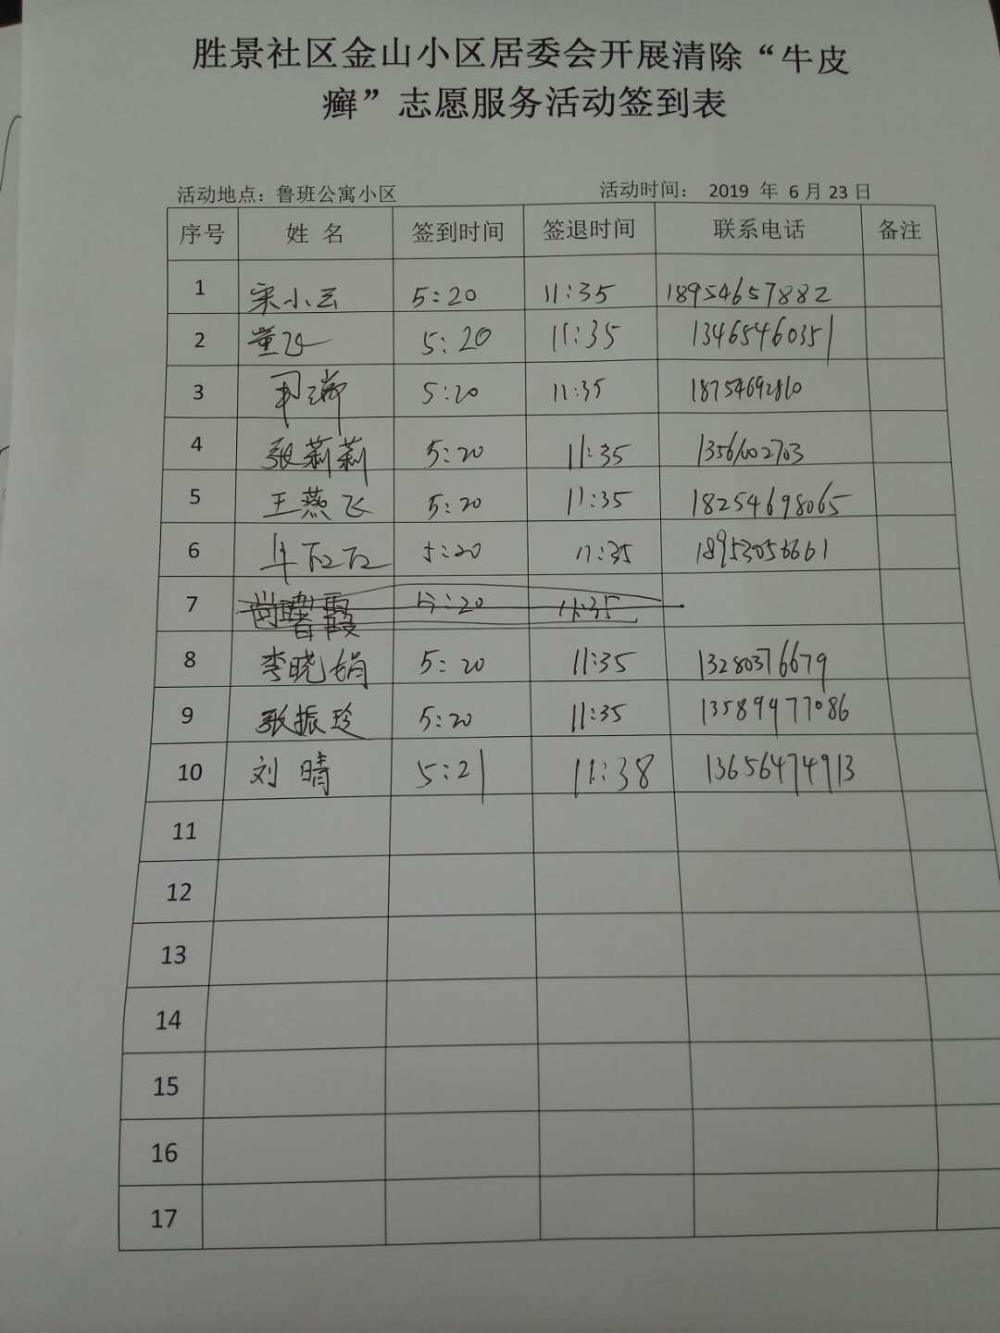 胜景社区金山小区居委会开展清除“牛皮
癣”志愿服务活动签到表
活动地点：鲁班公寓小区 活动时间： 2019 年 6 月 23 日
序号 姓 名 签到时间 签退时间 联系电话 备注
1 宋小云 5:20 11:35 18954657882
2 董飞 5:20 11:35 13465460351
3 5:20 11:35 18754692810
4 张莉莉 5:20 11:35
5 王燕飞 5:20 11:35 18254698065
6 5:20 11:35 18953056661
7 5:20 11:35
8 李晓娟 5:20 11:35 13280376679
9 张振玲 5:20 11:35 13589977086
10 刘晴 5:21 11:38 13656474913
11
12
13
14
15
16
17